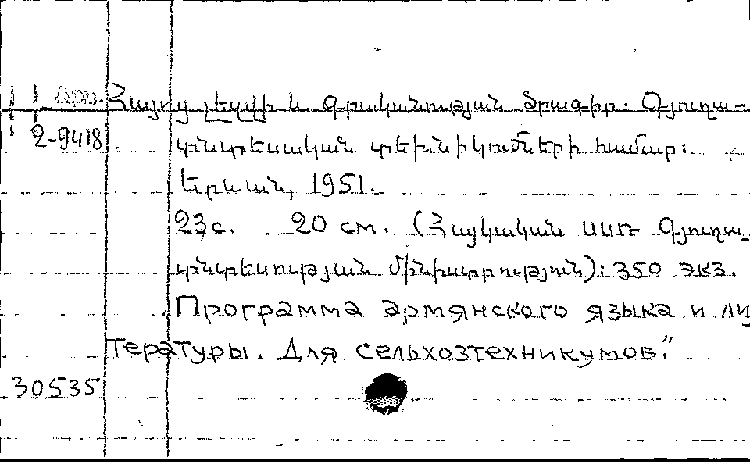 Հայոց լեզվի և գրականության ծրագիր: Գյուղա-
2-9418 տնտեսական տեխնիկումների համար:
Երևան, 1951.
23с. 20 см. (Հայկական ՍՍՌ Գյուղա-
տնտեսության Մինիստրություն): 350 экз.
Программа армянского языка и ли
тературы. Для сельхозтехникумов."
30535